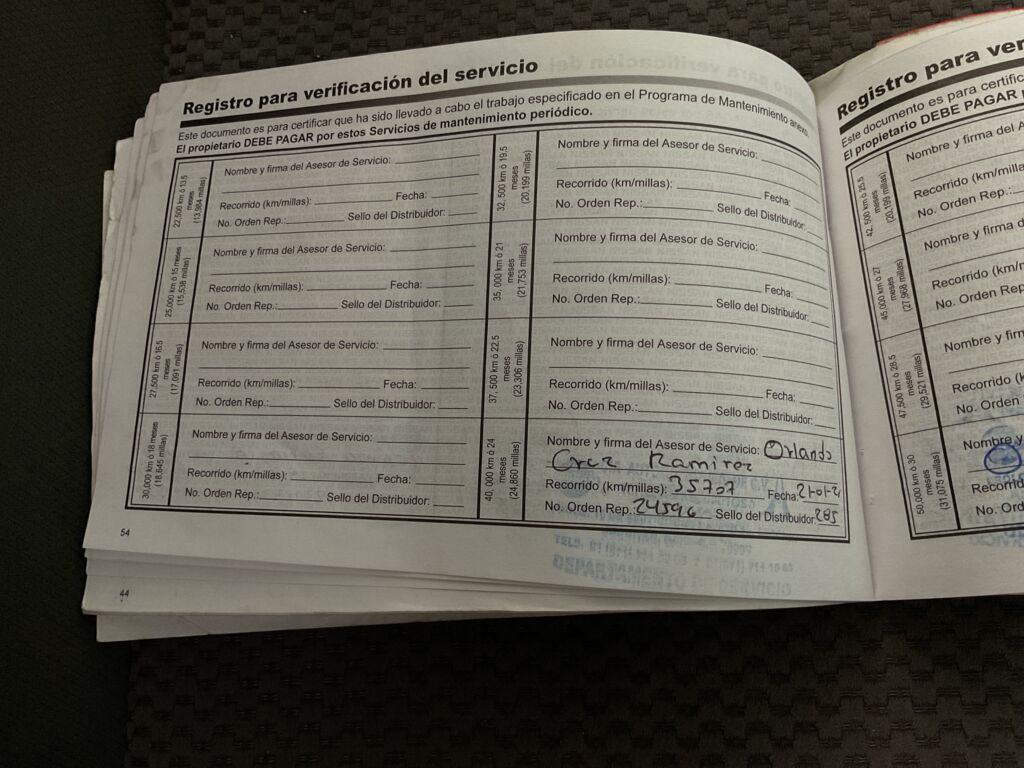 Registro para verificación del servicio
Este documento es para certificar que ha sido llevado a cabo el trabajo especificado en el Programa de Mantenimiento anexo.
El propietario DEBE PAGAR por estos Servicios de mantenimiento periódico.
22,500 km ó 13.5
meses
(13,984 millas)
Nombre y firma del Asesor de Servicio:
Recorrido (km/millas): Fecha:
No. Orden Rep.: Sello del Distribuidor:
25,000 km ó 15 meses
(15,538 millas)
Nombre y firma del Asesor de Servicio:
Recorrido (km/millas): Fecha:
No. Orden Rep.: Sello del Distribuidor:
27,500 km ó 16.5
meses
(17,091 millas)
Nombre y firma del Asesor de Servicio:
Recorrido (km/millas): Fecha:
No. Orden Rep.: Sello del Distribuidor:
30,000 km ó 18 meses
(18,645 millas)
Nombre y firma del Asesor de Servicio:
Recorrido (km/millas): Fecha:
No. Orden Rep.: Sello del Distribuidor:
32, 500 km ó 19.5
meses
(20,199 millas)
Nombre y firma del Asesor de Servicio:
Recorrido (km/millas): Fecha:
No. Orden Rep.: Sello del Distribuidor:
35, 000 km ó 21
meses
(21,753 millas)
Nombre y firma del Asesor de Servicio:
Recorrido (km/millas): Fecha:
No. Orden Rep.: Sello del Distribuidor:
37, 500 km ó 22.5
meses
(23,306 millas)
Nombre y firma del Asesor de Servicio:
Recorrido (km/millas): Fecha:
No. Orden Rep.: Sello del Distribuidor:
40, 000 km ó 24
meses
(24,860 millas)
Nombre y firma del Asesor de Servicio: Orlando
Cruz Ramirez
Recorrido (km/millas): 35707 Fecha: 21-01-21
No. Orden Rep.: 24596 Sello del Distribuidor: 285
DEPARTAMENTO DE SERVICIO
54
44
Registro para ver
Este documento es para certific
El propietario DEBE PAGAR
42, 500 km ó 25.5
meses
(20,199 millas)
Nombre y firma del A
Recorrido (km/milla
No. Orden Rep.:
45,000 km ó 27
meses
(27,968 millas)
Nombre y firma d
Recorrido (km/
No. Orden Rep
47,500 km ó 28.5
meses
(29,521 millas)
Nombre y firm
Recorrido (k
No. Orden
50,000 km ó 30
meses
(31,075 millas)
Nombre y
Recorrid
No. Orde